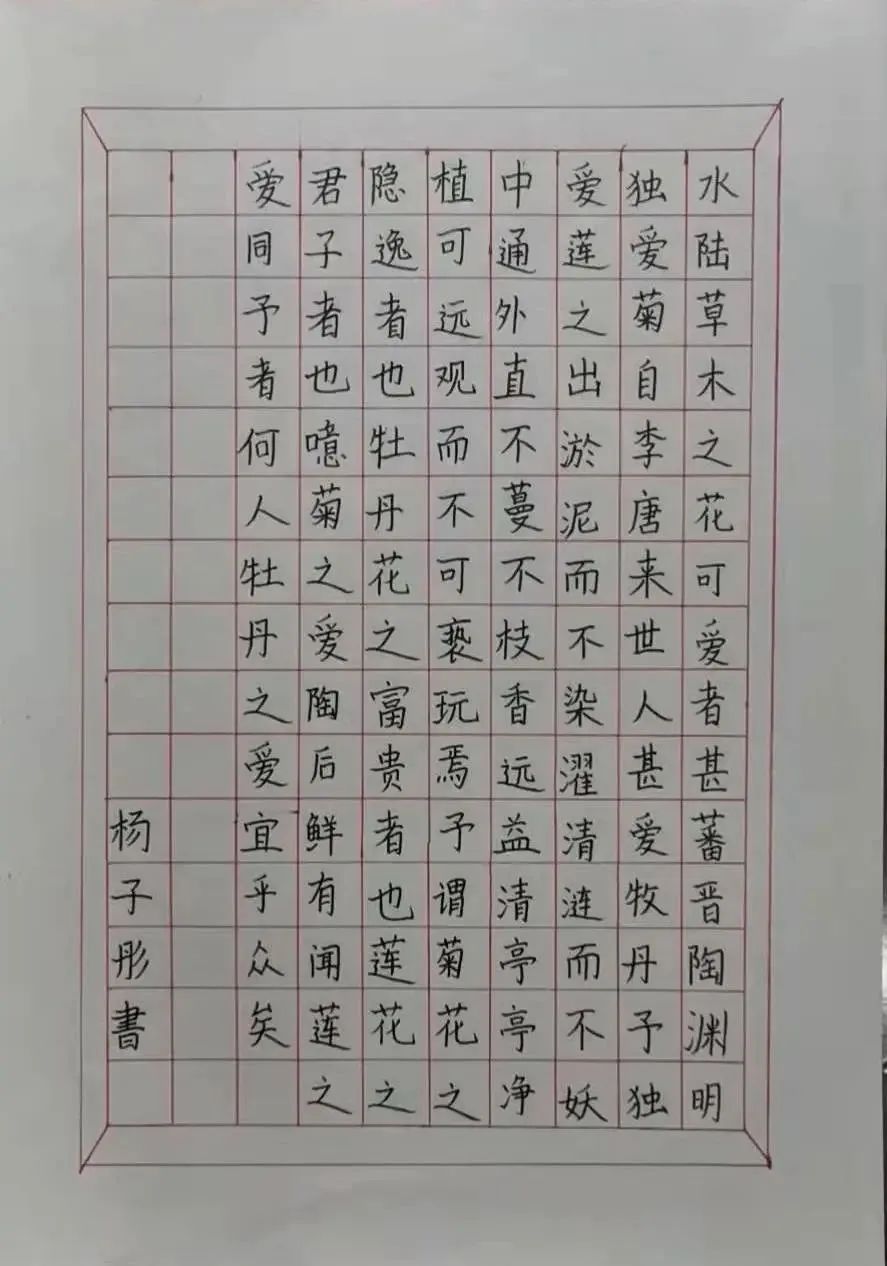 水陆草木之花可爱者甚蕃晋陶渊明
独爱菊自李唐来世人甚爱牧丹予独
爱莲之出淤泥而不染濯清涟而不妖
中通外直不蔓不枝香远益清亭亭净
植可远观而不可亵玩焉予谓菊花之
隐逸者也牡丹花之富贵者也莲花之
君子者也噫菊之爱陶后鲜有闻莲之
爱同予者何人牡丹之爱宜乎众矣
杨子彤書